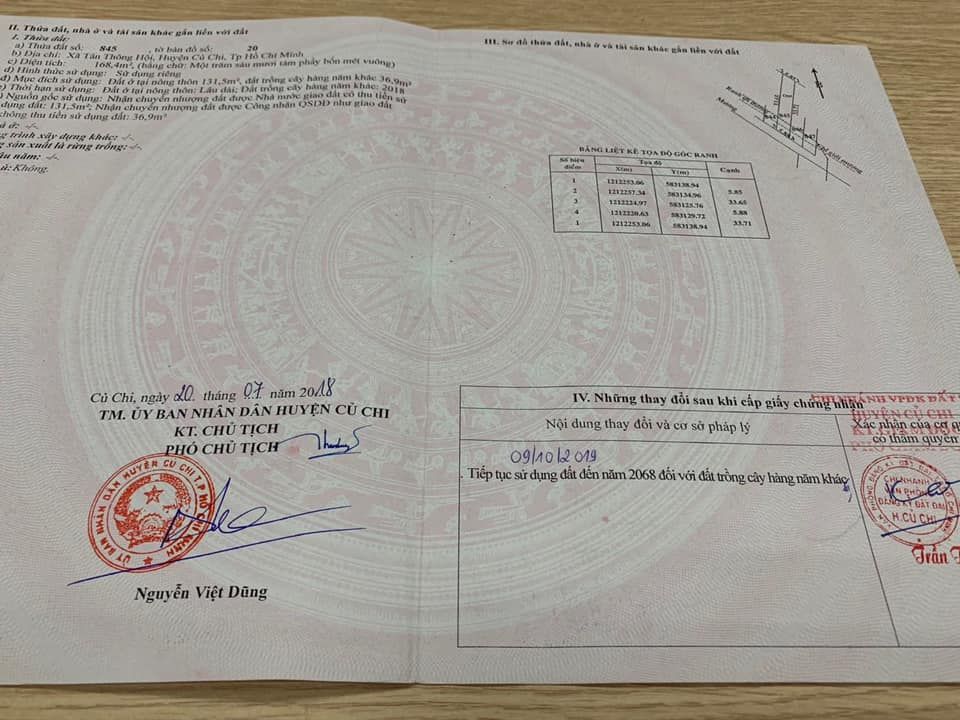 II. Thửa đất, nhà ở và tài sản khác gắn liền với đất
1. Thửa đất:
a) Thửa đất số: 845 , tờ bản đồ số: 20
b) Địa chỉ: Xã Tân Thông Hội, Huyện Củ Chi, Tp Hồ Chí Minh
c) Diện tích: 168,4m², (bằng chữ: Một trăm sáu mươi tám phẩy bốn mét vuông)
d) Hình thức sử dụng: Sử dụng riêng
đ) Mục đích sử dụng: Đất ở tại nông thôn 131,5m², đất trồng cây hàng năm khác 36,9m²
Thời hạn sử dụng: Đất ở tại nông thôn: Lâu dài; Đất trồng cây hàng năm khác: 2018
Nguồn gốc sử dụng: Nhận chuyển nhượng đất được Nhà nước giao đất có thu tiền sử
dụng đất: 131,5m²; Nhận chuyển nhượng đất được Công nhận QSDĐ như giao đất
không thu tiền sử dụng đất: 36,9m²
ở: -/-
trình xây dựng khác: -/-
sản xuất là rừng trồng: -/-
năm: -/-
Không.
III. Sơ đồ thửa đất, nhà ở và tài sản khác gắn liền với đất
Mương
BẢNG LIỆT KÊ TỌA ĐỘ GÓC RANH
Số hiệu điểm Tọa độ Cạnh
X(m) Y(m)
1 1212253.06 583138.94
5.85
2 1212257.34 583134.96
33.65
3 1212224.97 583125.76
5.88
4 1212220.63 583129.72
33.71
1 1212253.06 583138.94
Củ Chi, ngày 20 tháng 07 năm 2018
TM. ỦY BAN NHÂN DÂN HUYỆN CỦ CHI
KT. CHỦ TỊCH
PHÓ CHỦ TỊCH
ỦY BAN NHÂN DÂN HUYỆN CỦ CHI T.P HỒ CHÍ MINH
Nguyễn Việt Dũng
IV. Những thay đổi sau khi cấp giấy chứng nhận
Nội dung thay đổi và cơ sở pháp lý
Xác nhận của cơ
có thẩm quyền
09/10/2019
. Tiếp tục sử dụng đất đến năm 2068 đối với đất trồng cây hàng năm khác
CHI NHÁNH VPĐK ĐẤT
HUYỆN CỦ CHI
CHI NHÁNH
VĂN PHÒNG
ĐĂNG KÝ ĐẤT ĐAI
H.CỦ CHI
Trần